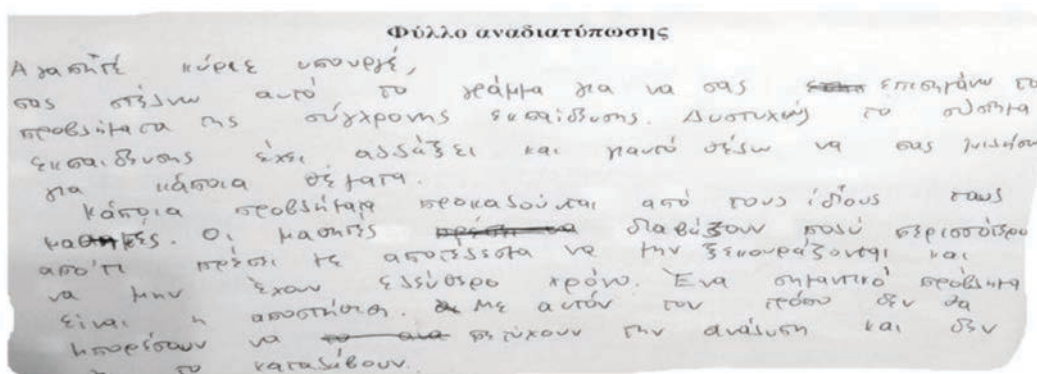 Φύλλο αναδιατύπωσης
Αγαπητέ κύριε υπουργέ,
σας στέλνω αυτό το γράμμα για να σας επισημάνω το
προβλήματα της σύγχρονης εκπαίδευσης. Δυστυχώς το σύστημα
εκπαίδευσης έχει αλλάξει και γιαυτό θέλω να σας μιλήσω
για κάποια θέματα.
Κάποια προβλήματα προκαλούνται από τους ίδιους τους
μαθητές. Οι μαθητές διαβάζουν πολύ περισσότερο
απο'τι πρέπει με αποτέλεσμα να μην ξεκουράζονται και
να μην έχουν ελεύθερο χρόνο. Ένα σημαντικό πρόβλημα
είναι η αποστήθιση. Με αυτόν τον τρόπο δεν θα
μπορέσουν να πετύχουν την ανάλυση και δεν
το καταλάβουν.